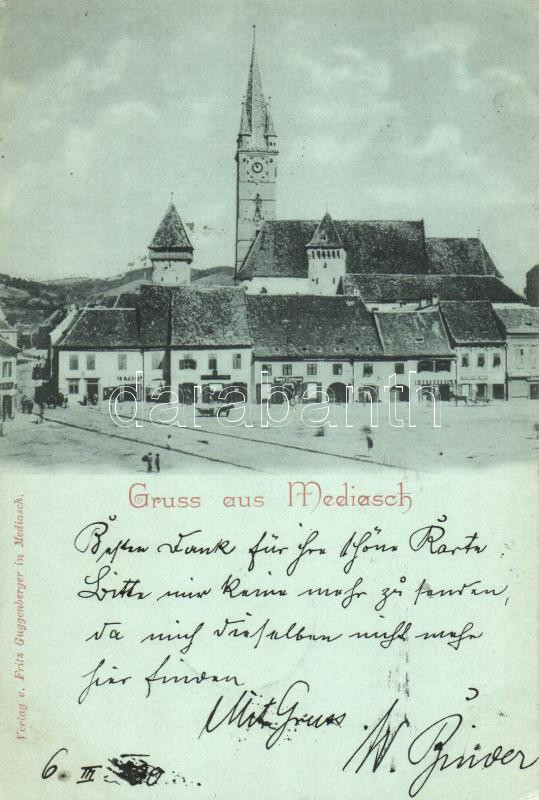 darabanth
Gruss aus Mediasch
Besten Dank für ihre schöne Karte
Bitte mir keine mehr zu senden,
da mich dieselben nicht mehr
hier finden
Mit Gruss
W Binder
6. III
Verlag v. Fritz Guggenberger in Mediasch.